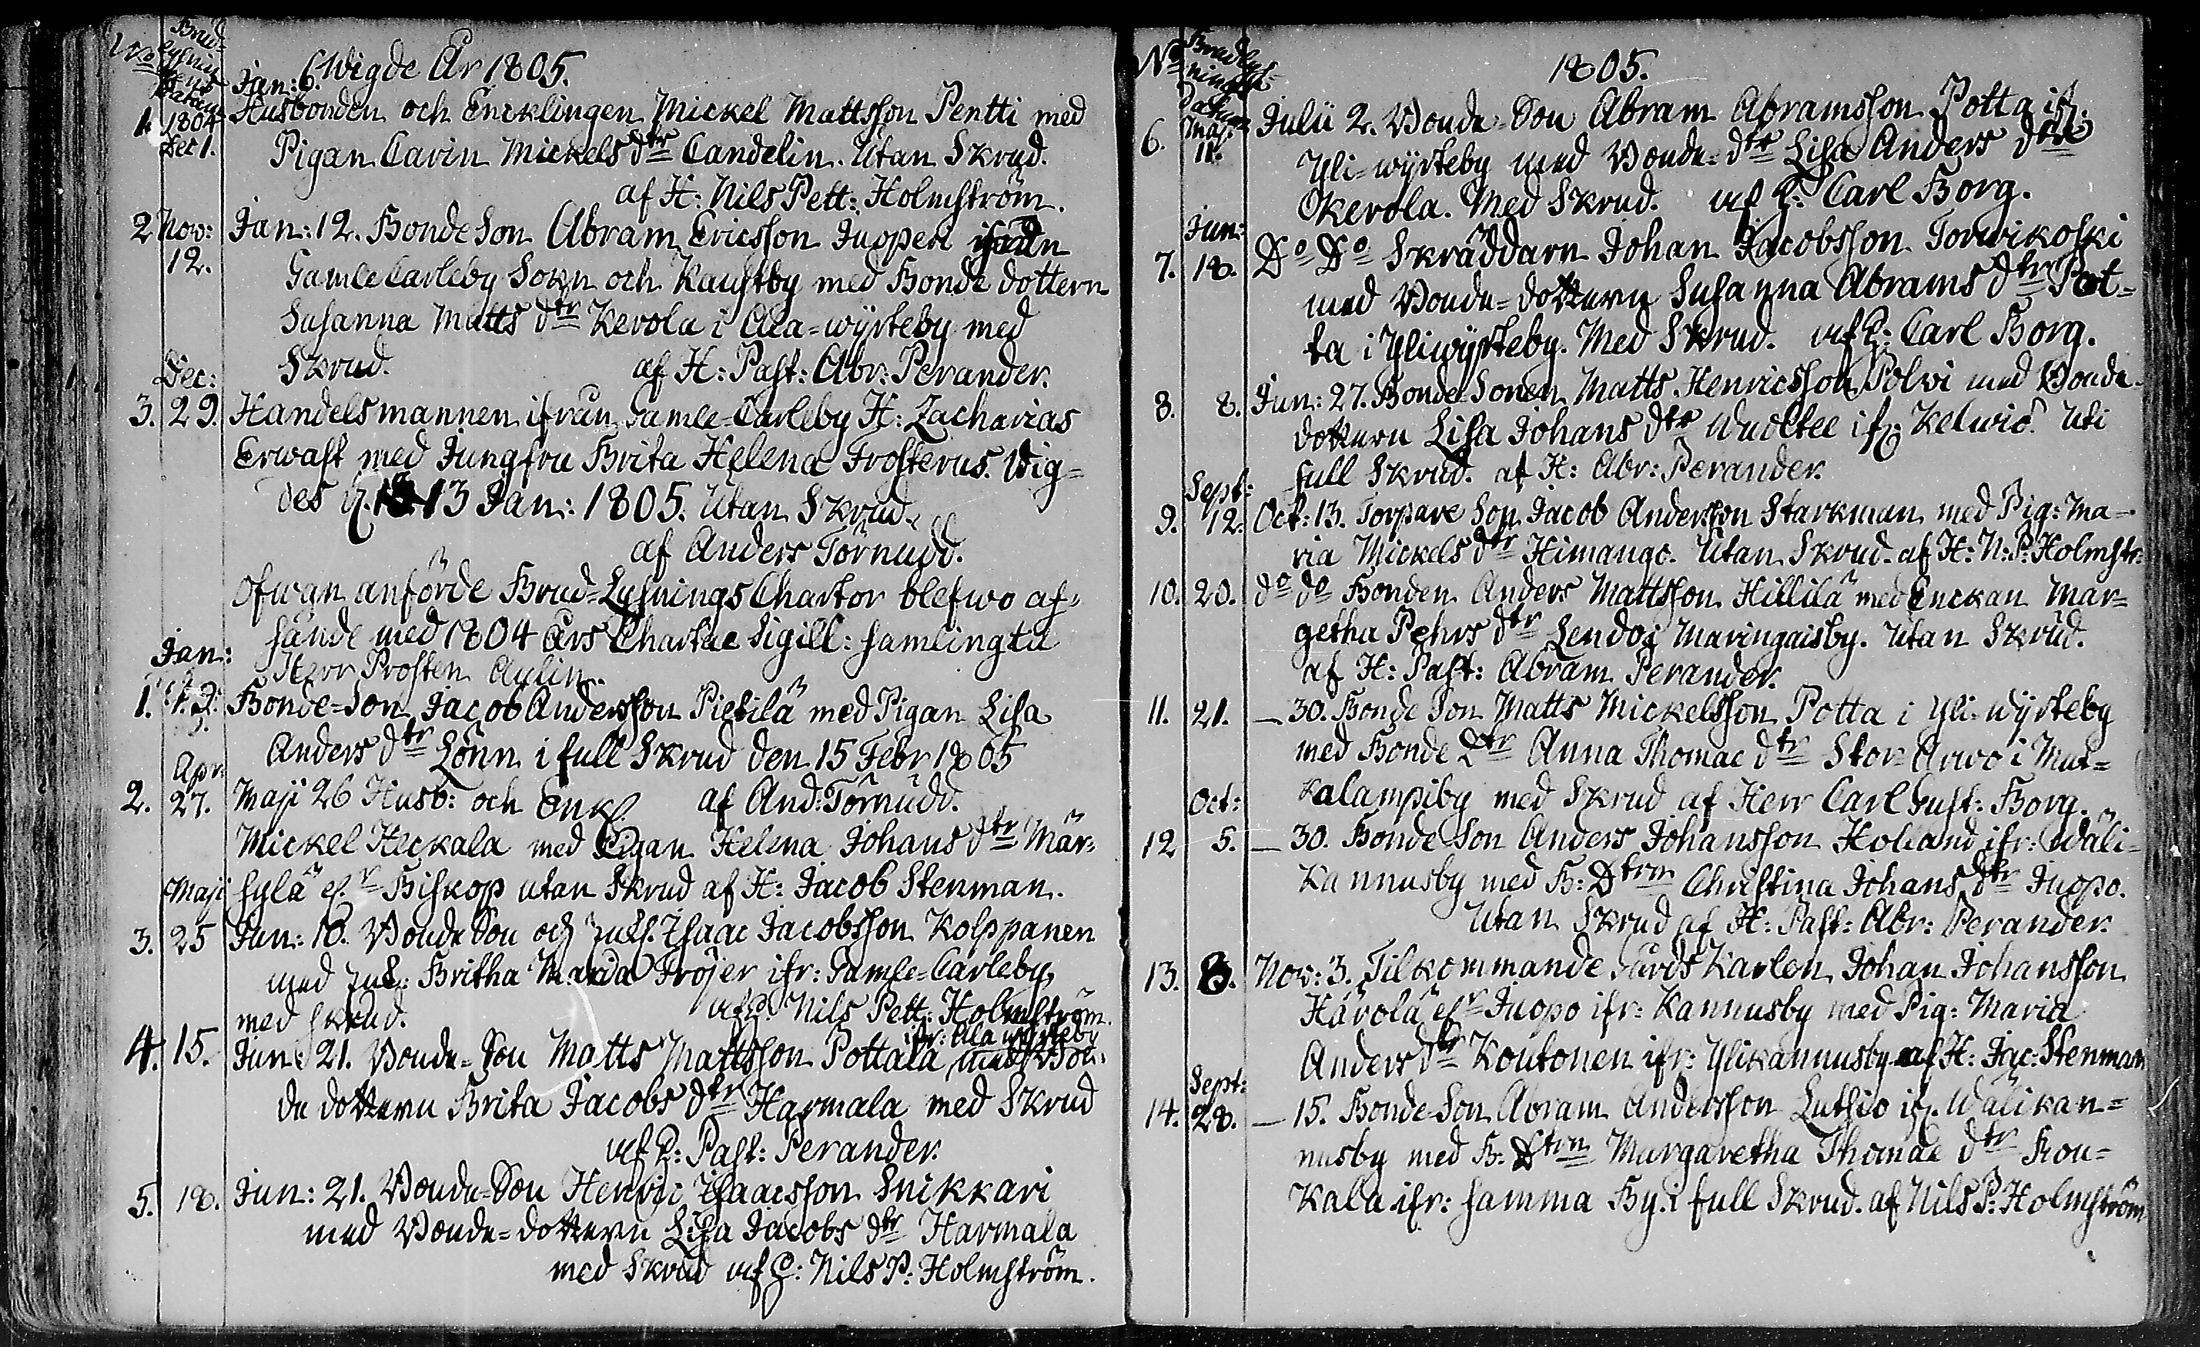 No Brud-
lysnin
gens
Datum
Wigde År 1805.
Jan: 6.
1. 1804 Dec 1. Husbonden och Encklingen Mickel Mattsson Pentti med
Pigan Carin Mickels dtr Candelin. Utan Skrud.
af H: Nils Pett: Holmström.
2 Nov: 12. Jan: 12. Bonde Son Abram Ericsson Juopen ifrån
Gamlecarleby Sokn och Kaustby med Bonde dottern
Susanna Matts dtr Kerola i Ala-wyrkeby med
Skrud. af H: Past: Abr: Perander.
Dec:
3. 29. Handelsmannen ifrån Gamle-Carleby H: Zacharias
Erwast med Jungfru Brita Helena Frosterus. Wig-
des d. 13 Jan: 1805. Utan Skrud.
af Anders Törnudd.
Ofwan anförde Brud-Lysnings Chartor blefwo af-
sände med 1804 års Chartae Sigill: samling til
Herr Prosten Aulin.
Jan:
1. Bonde-Son Jacob Andersson Pietilä med Pigan Lisa
Anders dtr Lönn i full Skrud den 15 Febr 1805
Apr.
2. 27. Maji 26 Husb: och Enkl. af And: Törnudd.
Mickel Heckala med Pigan Helena Johans dtr Mär-
sylä elr Biskop utan Skrud af H: Jacob Stenman.
Maji
3. 25 Jun: 10. Bonde Son och Isaac Jacobsson Kolppanen
med Britha Maria Fröjer ifr: Gamle-Carleby
med skrud. af H. Nils Pett: Holmström.
ifr: Ala wyrkeby
4. 15. Jun: 21. Bonde-Son Matts Mattsson Pottala med Bon-
de dottern Brita Jacobs dtr Harmala med Skrud
af H: Past: Perander.
5. 18. Jun: 21. Bonde-Son Henric Isaacsson Snikkari
med Bonde-dottern Lisa Jacobs dtr Harmala
med Skrud af H: Nils P: Holmström.
No Brudlys-
ningens
Datum
1805.
6. Maji 11. Julii 2. Bonde-Son Abram Abramsson Potta ifr.
Yli-wyrkeby med Bonde-dtr Lisa Anders dtr
Kerola. Med Skrud. af H: Carl Borg.
Jun:
7. 18. Do Do Skräddarn Johan Jacobsson Torwikoski
med Bonde-dottern Susanna Abrams dtr Pot-
ta i Yliwyrkeby. Med Skrud. af H: Carl Borg.
8. 8. Jun: 27. Bonde-Sonen Matts Henricsson Polwi med Bonde-
dottern Lisa Johans dtr ifr. Kelwiå. Uti
full Skrud. af H: Abr: Perander.
Sept:
9. 12. Oct: 13. Torpare Son Jacob Andersson Starkman med Pig: Ma-
ria Mickels dtr Himango. Utan Skrud. af H: N: P: Holmstr:
10. 20. do do Bonden Anders Mattsson Hillilä med Enckan Mar-
getha Pehrs dtr Lendoi Maringaisby. Utan Skrud.
af H: Past: Abram Perander.
11. 21. — 30. Bonde Son Matts Mickelsson Potta i Yli-wyrkeby
med Bonde Dtr Anna Thomae dtr Stor-Arwo i Mut-
kalampiby med Skrud af Herr Carl Gust: Borg.
Oct:
12 5. — 30. Bonde Son Anders Johansson Holland ifr: Wäli-
kannusby med B: Dtrn Christina Johans dtr Juopo.
Utan Skrud af H: Past: Abr: Perander.
13. 3. Nov: 3. Tilkommande Gårds Karlen Johan Johansson
Härola elr Juopo ifr: Kannusby med Pig: Maria
Anders dtr Koutonen ifr: Ylikannusby af H: Jac: Stenman
Sept:
14. 28. — 15. Bonde-Son Abram Andersson Luthio ifr. Wälikan-
nusby med B: Dtrn Margaretha Thomae dtr Kou-
kala ifr: samma By. i full Skrud. af Nils P: Holmström